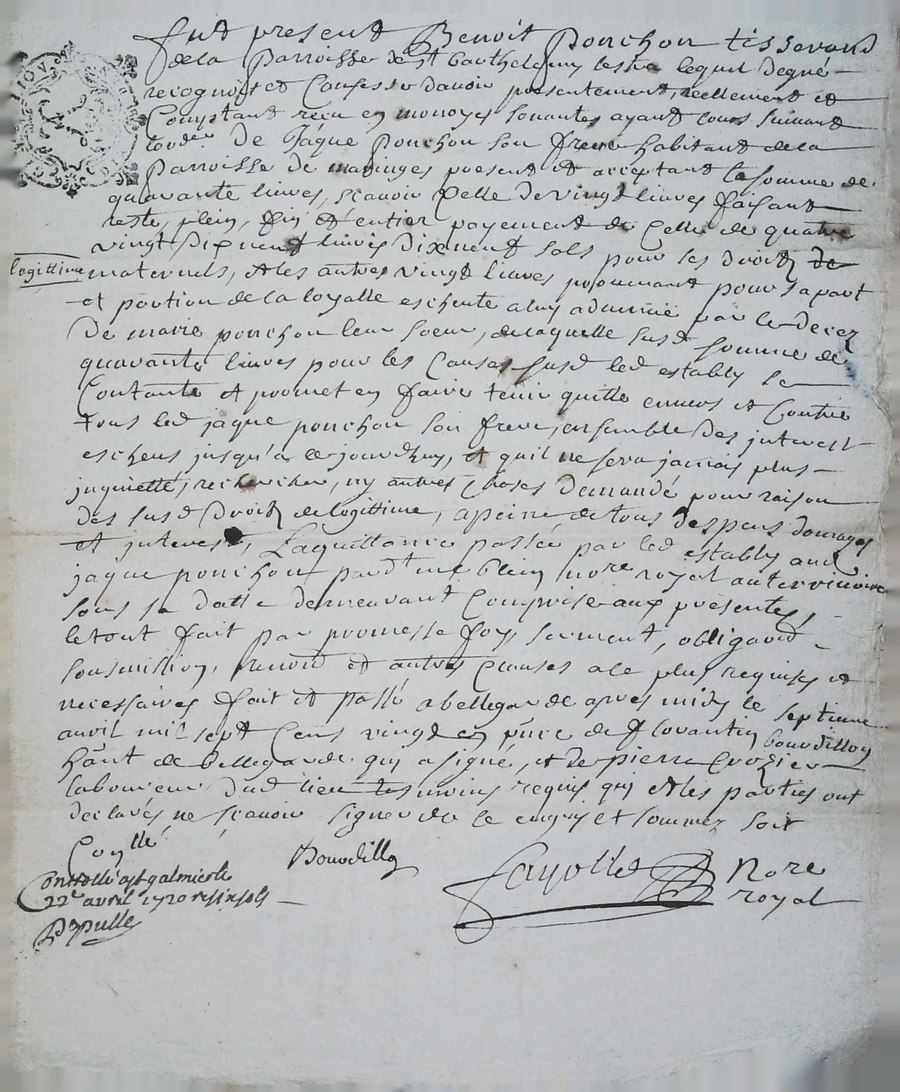 fut present Benoit Ponchon tisserand
de la Parroisse de St Barthelemy lestra lequel de gré
recognoist et Confesse d'avoir presentement, reellement et
Comptant receu en monoyes sonantes ayant cours suivant
l'orde. De Jâque Ponchon son frere habitant de la
Parroisse de maringes present et acceptant la somme de
quarante livres, sçavoir Celle de vingt livres faisant
reste, plein, fin et entier payement de Celle de quatre
vingt dixneuf livres dixneuf sols pour ses droitz de
logittime
maternels, et les autres vingt livres provenant pour sa part
et portion de la loyalle escheute a luy advenue par le decez
De marie ponchon leur soeur, de laquelle susd somme de
quarante livres pour les Causes susd led estably se
Contante et promet en faire tenir quitte envers et Contre
tous led jaque ponchon son frere, ensemble des interest
escheus jusqu'a ce jourdhuy, et quil ne sera jamais plus
inquietté, recherché, ny autres Choses demandé pour raison
des susd Droitz de logittime, a peine de tous despens domages
et interest, Laquittance passée par led estably aud
jaque ponchon pardt me blein nore royal
sous sa datte demeurant Comprise aux presentes,
le tout fait par promesse foy, serment, obligaôn
sousmission, renonôn et autres Clauses a ce plus requises et
necessaires fait et passé a bellegarde apres midy le septieme
avril mil sept Cens vingt en pñce de florantin bourdillon
hãnt de bellegarde qui a signé, et de pierre Crozier
laboureur dud lieu tesmoins requis qui et les parties ont
declarés ne sçavoir signer de ce enquis et sommez soit
Conllé
Bourdillon
Fayolle Nore
royal
Controllé a st galmier le
22e avril 1720
Populle